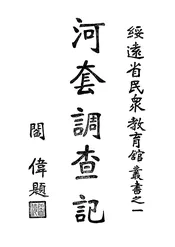 綏遠省民眾教育館叢書之一
河套調查記
閻偉題